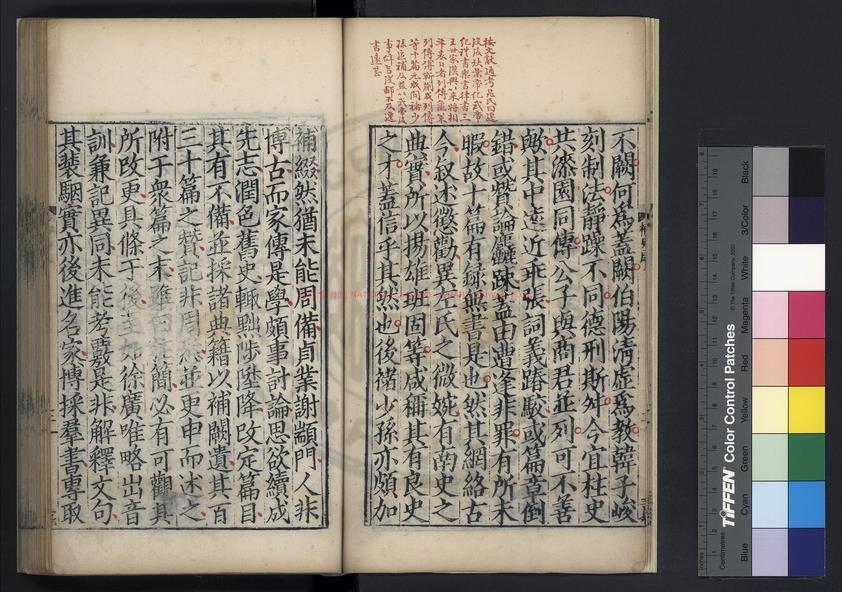 按文獻通考
不闕何爲蓋闕伯陽清虛爲教韓子峻
刻制法靜躁不同德刑斯舛今宜柱史
共漆園同傳公子與商君並列可不善
歟其中遠近乖張詞義踳駮或篇章倒
錯或贊論麤疎蓋由遭逢非罪有所未
暇故十篇有録無書是也然其網絡古
今叙述懲勸異左氏之微婉有南史之
典實所以揚雄班固等咸稱其有良史
之才蓋信乎其然也後禇少孫亦頗加
補綴然猶未能周備貞業謝顓門人非
博古而家傳是學頗事討論思欲續成
先志潤色舊史輒黜陟陞降改定篇目
其有不備並採諸典籍以補闕遺其百
三十篇之贊記非周悉並更申而述之
附于衆篇之末雖曰狂簡必有可觀其
所改更具條于後至如徐廣唯略出音
訓兼記異同未能考覈是非解釋文句
其裴駰實亦後進名家博採羣書專取
TIFFEN Color Control Patches
© The Tiffen Company, 2007
Blue
Cyan
Green
Yellow
Red
Magenta
White
3/Color
Black
Inches
Centimetres